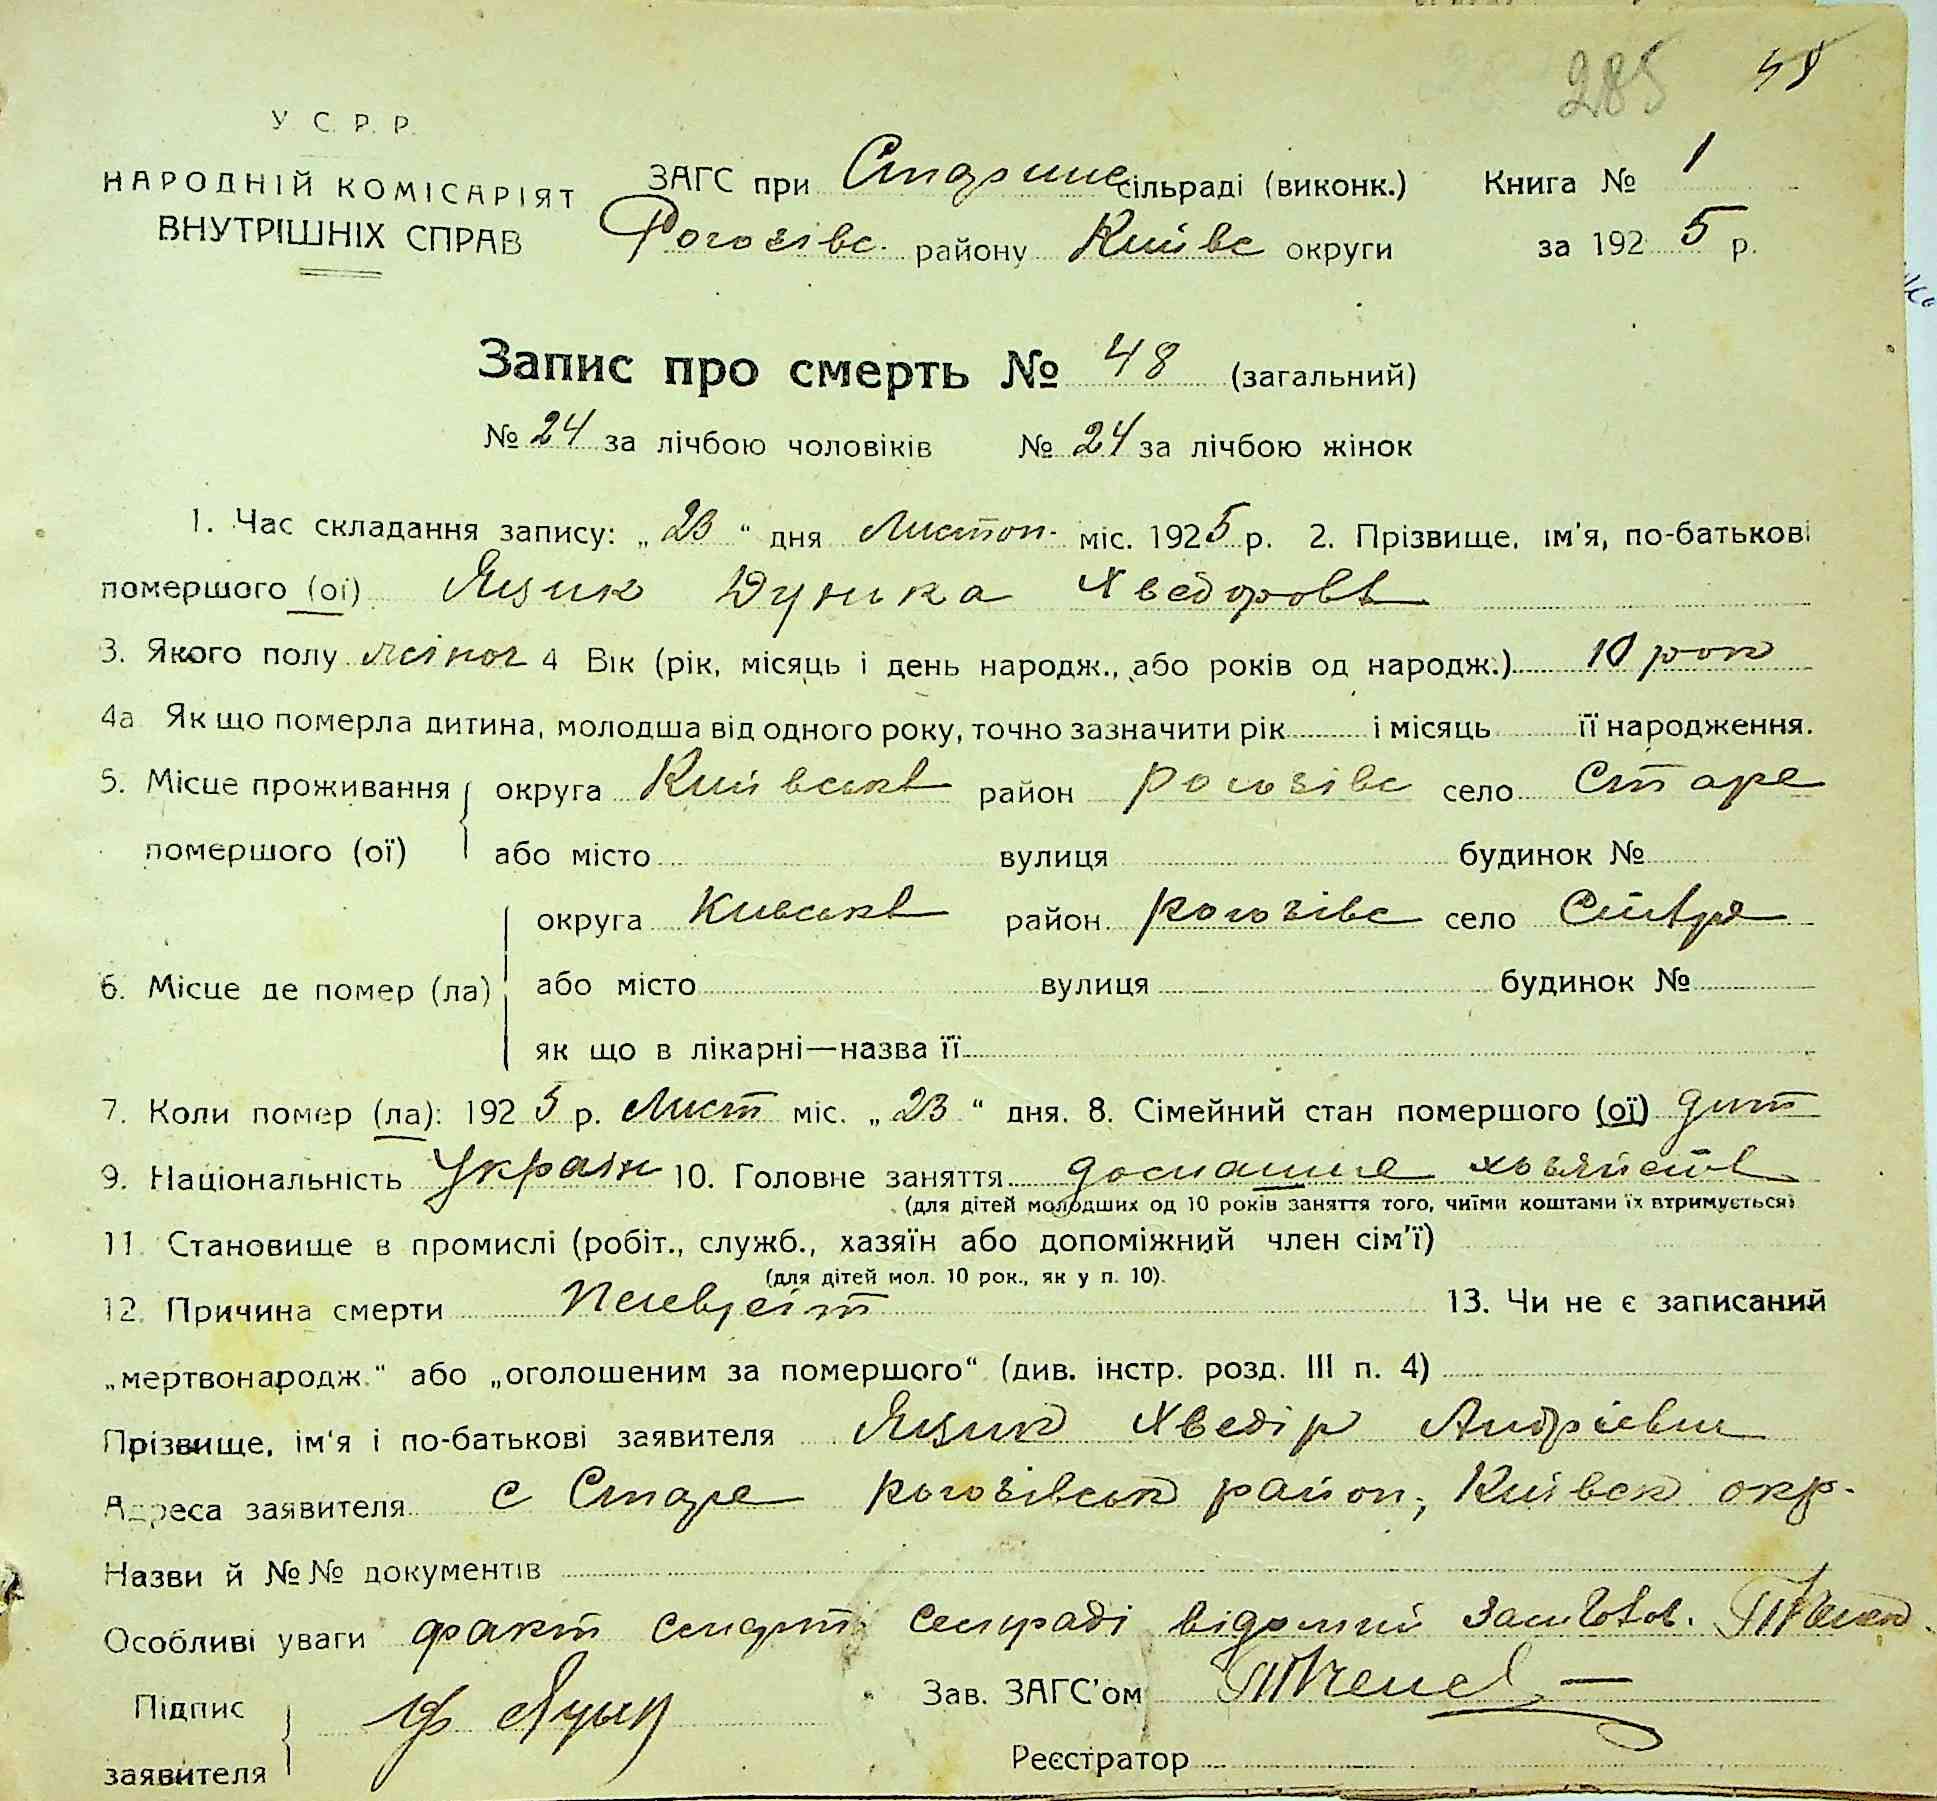 285 48
У. С. Р. Р.
НАРОДНІЙ КОМІСАРІЯТ
ВНУТРІШНІХ СПРАВ
ЗАГС при Старинс сільраді (виконк.) Книга № 1
Рогозівс. району Київс округи за 192 5 р.
Запис про смерть № 48 (загальний)
№ 24 за лічбою чоловіків № 24 за лічбою жінок
1. Час складання запису: „ 23 “ дня Листоп. міс. 1925 р. 2. Прізвище, ім'я, по-батькові
помершого (ої) Яцик Дунька Хведоров
3. Якого полу жіноч 4 Вік (рік, місяць і день народж., або років од народж.) 10 рок
4а Як що померла дитина, молодша від одного року, точно зазначити рік і місяць її народження.
5. Місце проживання округа Київськ район Рогозівс село Старе
помершого (ої) або місто вулиця будинок №
округа Киівськ район Рогозівс село Старе
6. Місце де помер (ла) або місто вулиця будинок №
як що в лікарні—назва її
7. Коли помер (ла): 192 5 р. Лист міс. „ 23 “ дня. 8. Сімейний стан помершого (ої) дит
9. Національність Україн 10. Головне заняття домашнє хозяйств
(для дітей молодших од 10 років заняття того, чиїми коштами їх втримується)
11. Становище в промислі (робіт., служб., хазяїн або допоміжний член сім'ї)
(для дітей мол. 10 рок., як у п. 10).
12. Причина смерти Плевріт 13. Чи не є записаний
„мертвонародж.“ або „оголошеним за помершого“ (див. інстр. розд. III п. 4)
Прізвище, ім'я і по-батькові заявителя Яцик Хведір Андрієви
Адреса заявителя с Старе Рогозівськ район, Київськ окр.
Назви й №№ документів
Особливі уваги факт смерті сельраді відомий
Підпис Ф Яцик Зав. ЗАГС'ом
заявителя Реєстратор